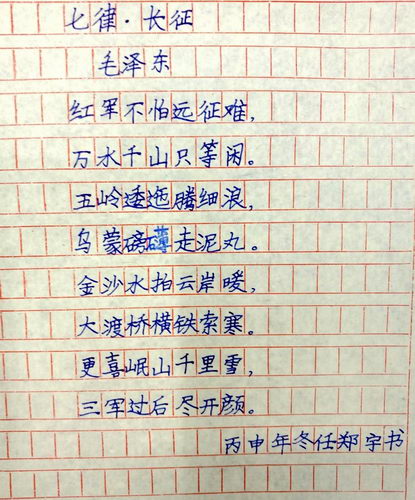 七律·长征
毛泽东
红军不怕远征难，
万水千山只等闲。
五岭逶迤腾细浪，
乌蒙磅礴走泥丸。
金沙水拍云岸暖，
大渡桥横铁索寒。
更喜岷山千里雪，
三军过后尽开颜。
丙申年冬任郑宇书